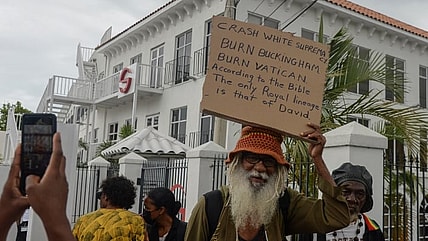 CRASH WHITE SUPREMA
BURN BUCKINGHAM
BURN VATICAN
According to the Bible
The only Royal lineage
is that of David